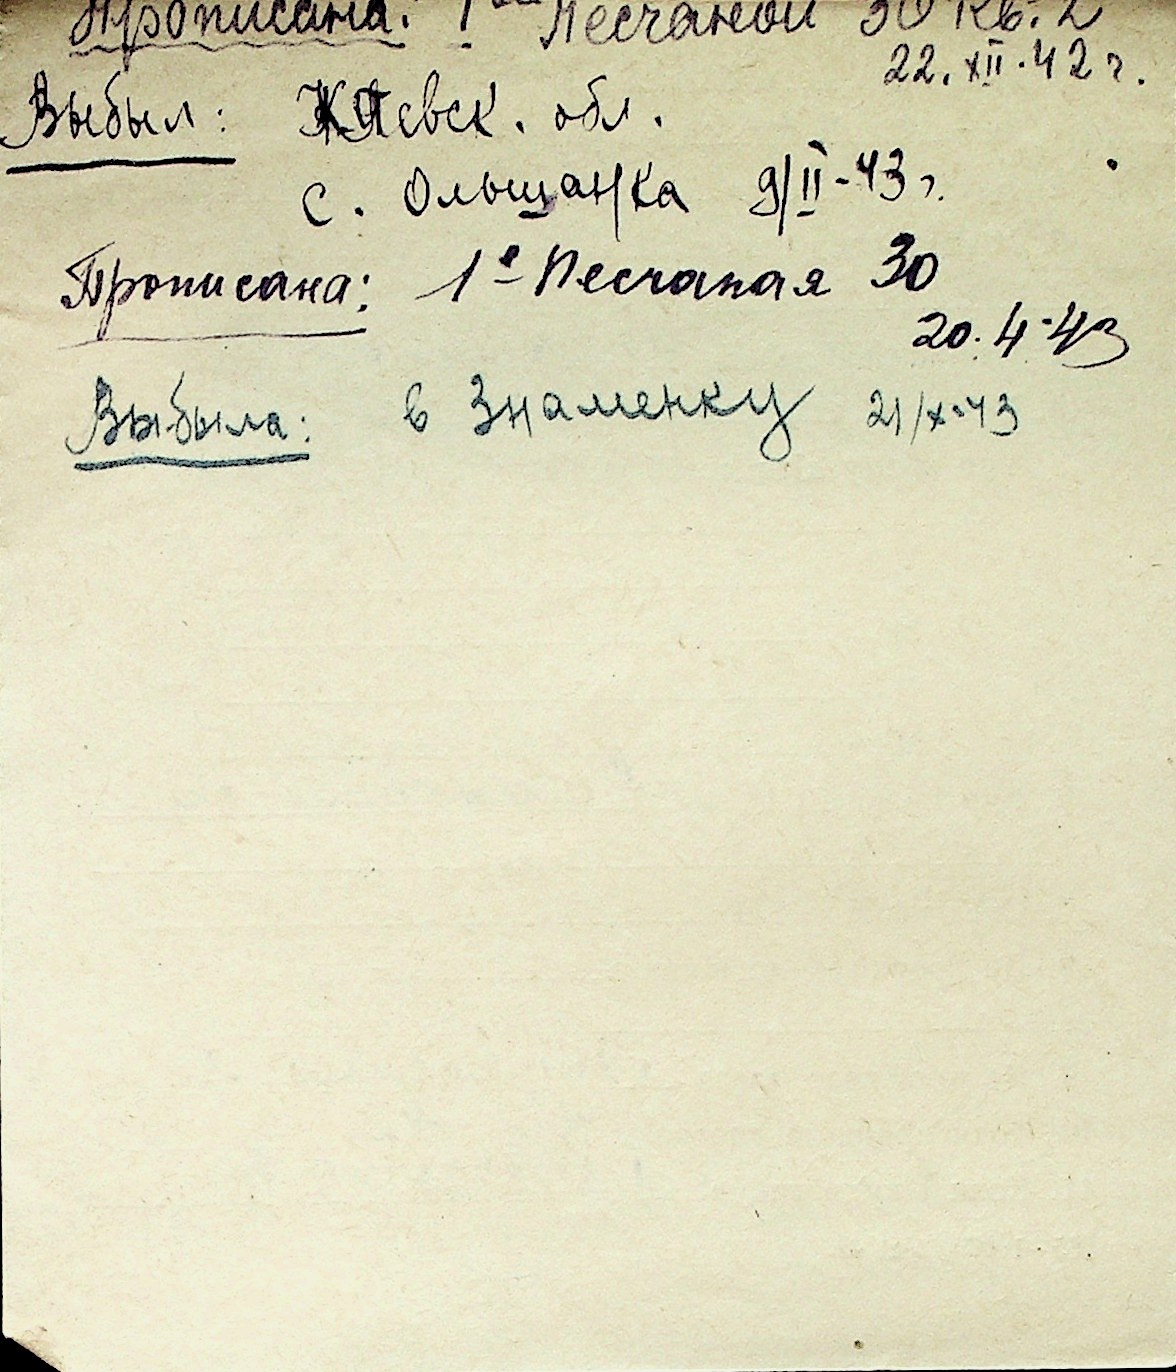 Прописана: 1ой Песчаной 30 кв. 2
22.XII.42 г.
Выбыл: Киевск. обл.
с. Ольшанка 9/II-43 г.
Прописана: 1я Песчаная 30
20.4.43
Выбыла: в Знаменку 21/X-43